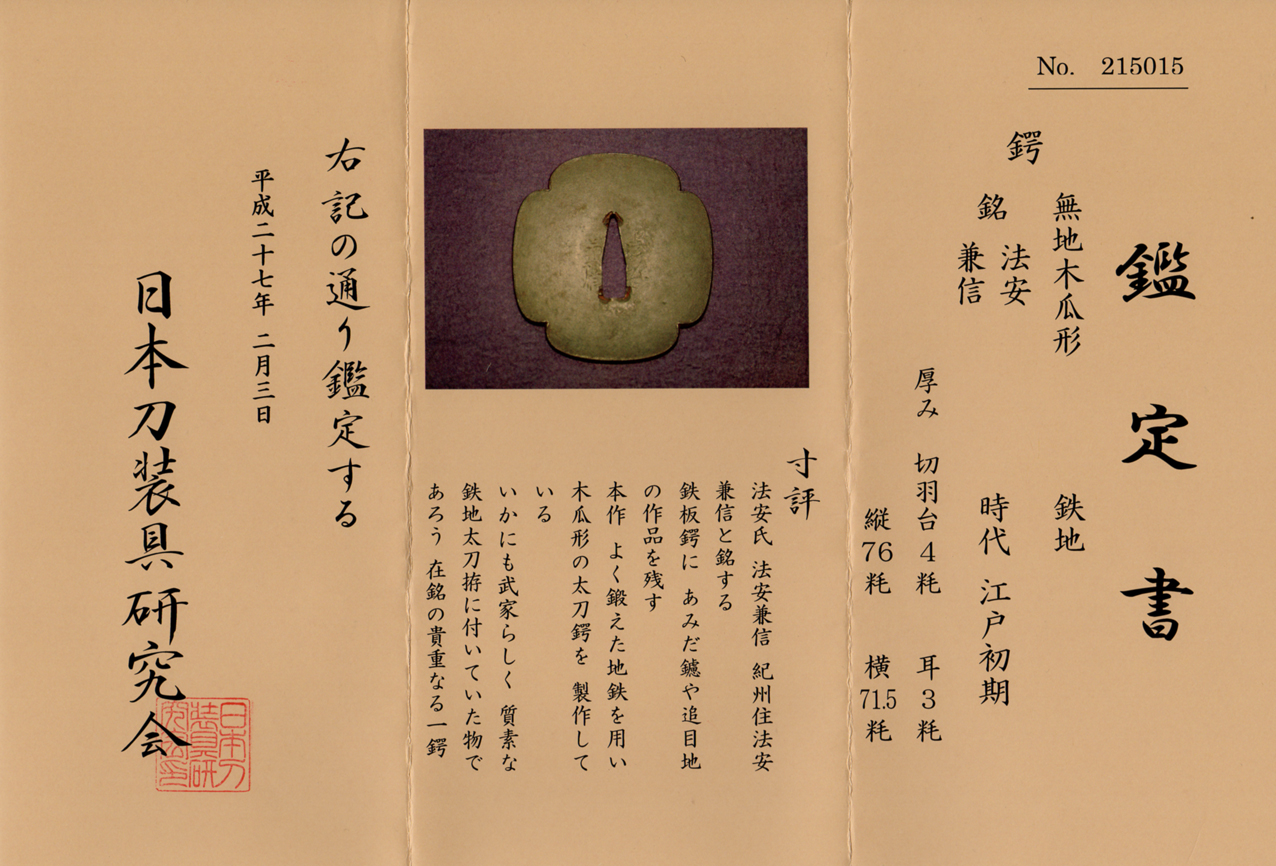 No. 215015
鑑定書
無地木瓜形 鉄地
鍔
銘 法安
兼信
時代 江戸初期
厚み 切羽台4粍 耳3粍
縦76粍 横71.5粍
寸評
法安氏 法安兼信 紀州住法安
兼信と銘する
鉄板鍔に あみだ鑢や追目地
の作品を残す
本作 よく鍛えた地鉄を用い
木瓜形の太刀鍔を 製作して
いる
いかにも武家らしく 質素な
鉄地太刀拵に付いていた物で
あろう 在銘の貴重なる一鍔
右記の通り鑑定する
平成二十七年 二月三日
日本刀装具研究会
日本刀
装具研
究会印